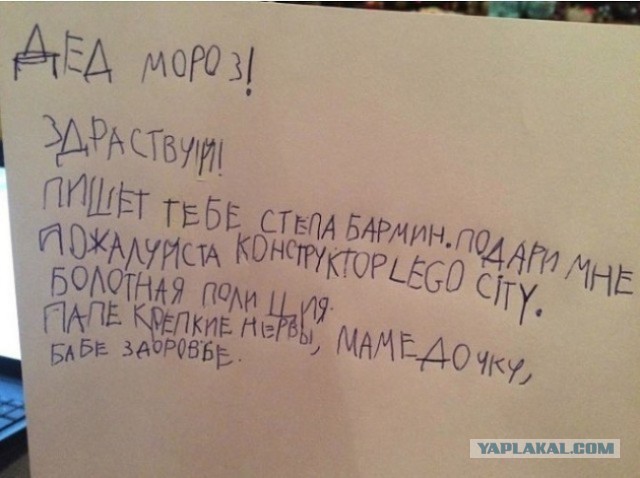 ДЕД МОРОЗ!
ЗДРАСТВУЙ!
ПИШЕТ ТЕБЕ СТЕПА БАРМИН. ПОДАРИ МНЕ
ПОЖАЛУЙСТА КОНСТРУКТОР LEGO CITY.
БОЛОТНАЯ ПОЛИЦИЯ.
ПАПЕ КРЕПКИЕ НЕРВЫ, МАМЕ ДОЧКУ,
БАБЕ ЗДОРОВЬЕ.
YAPLAKAL.COM